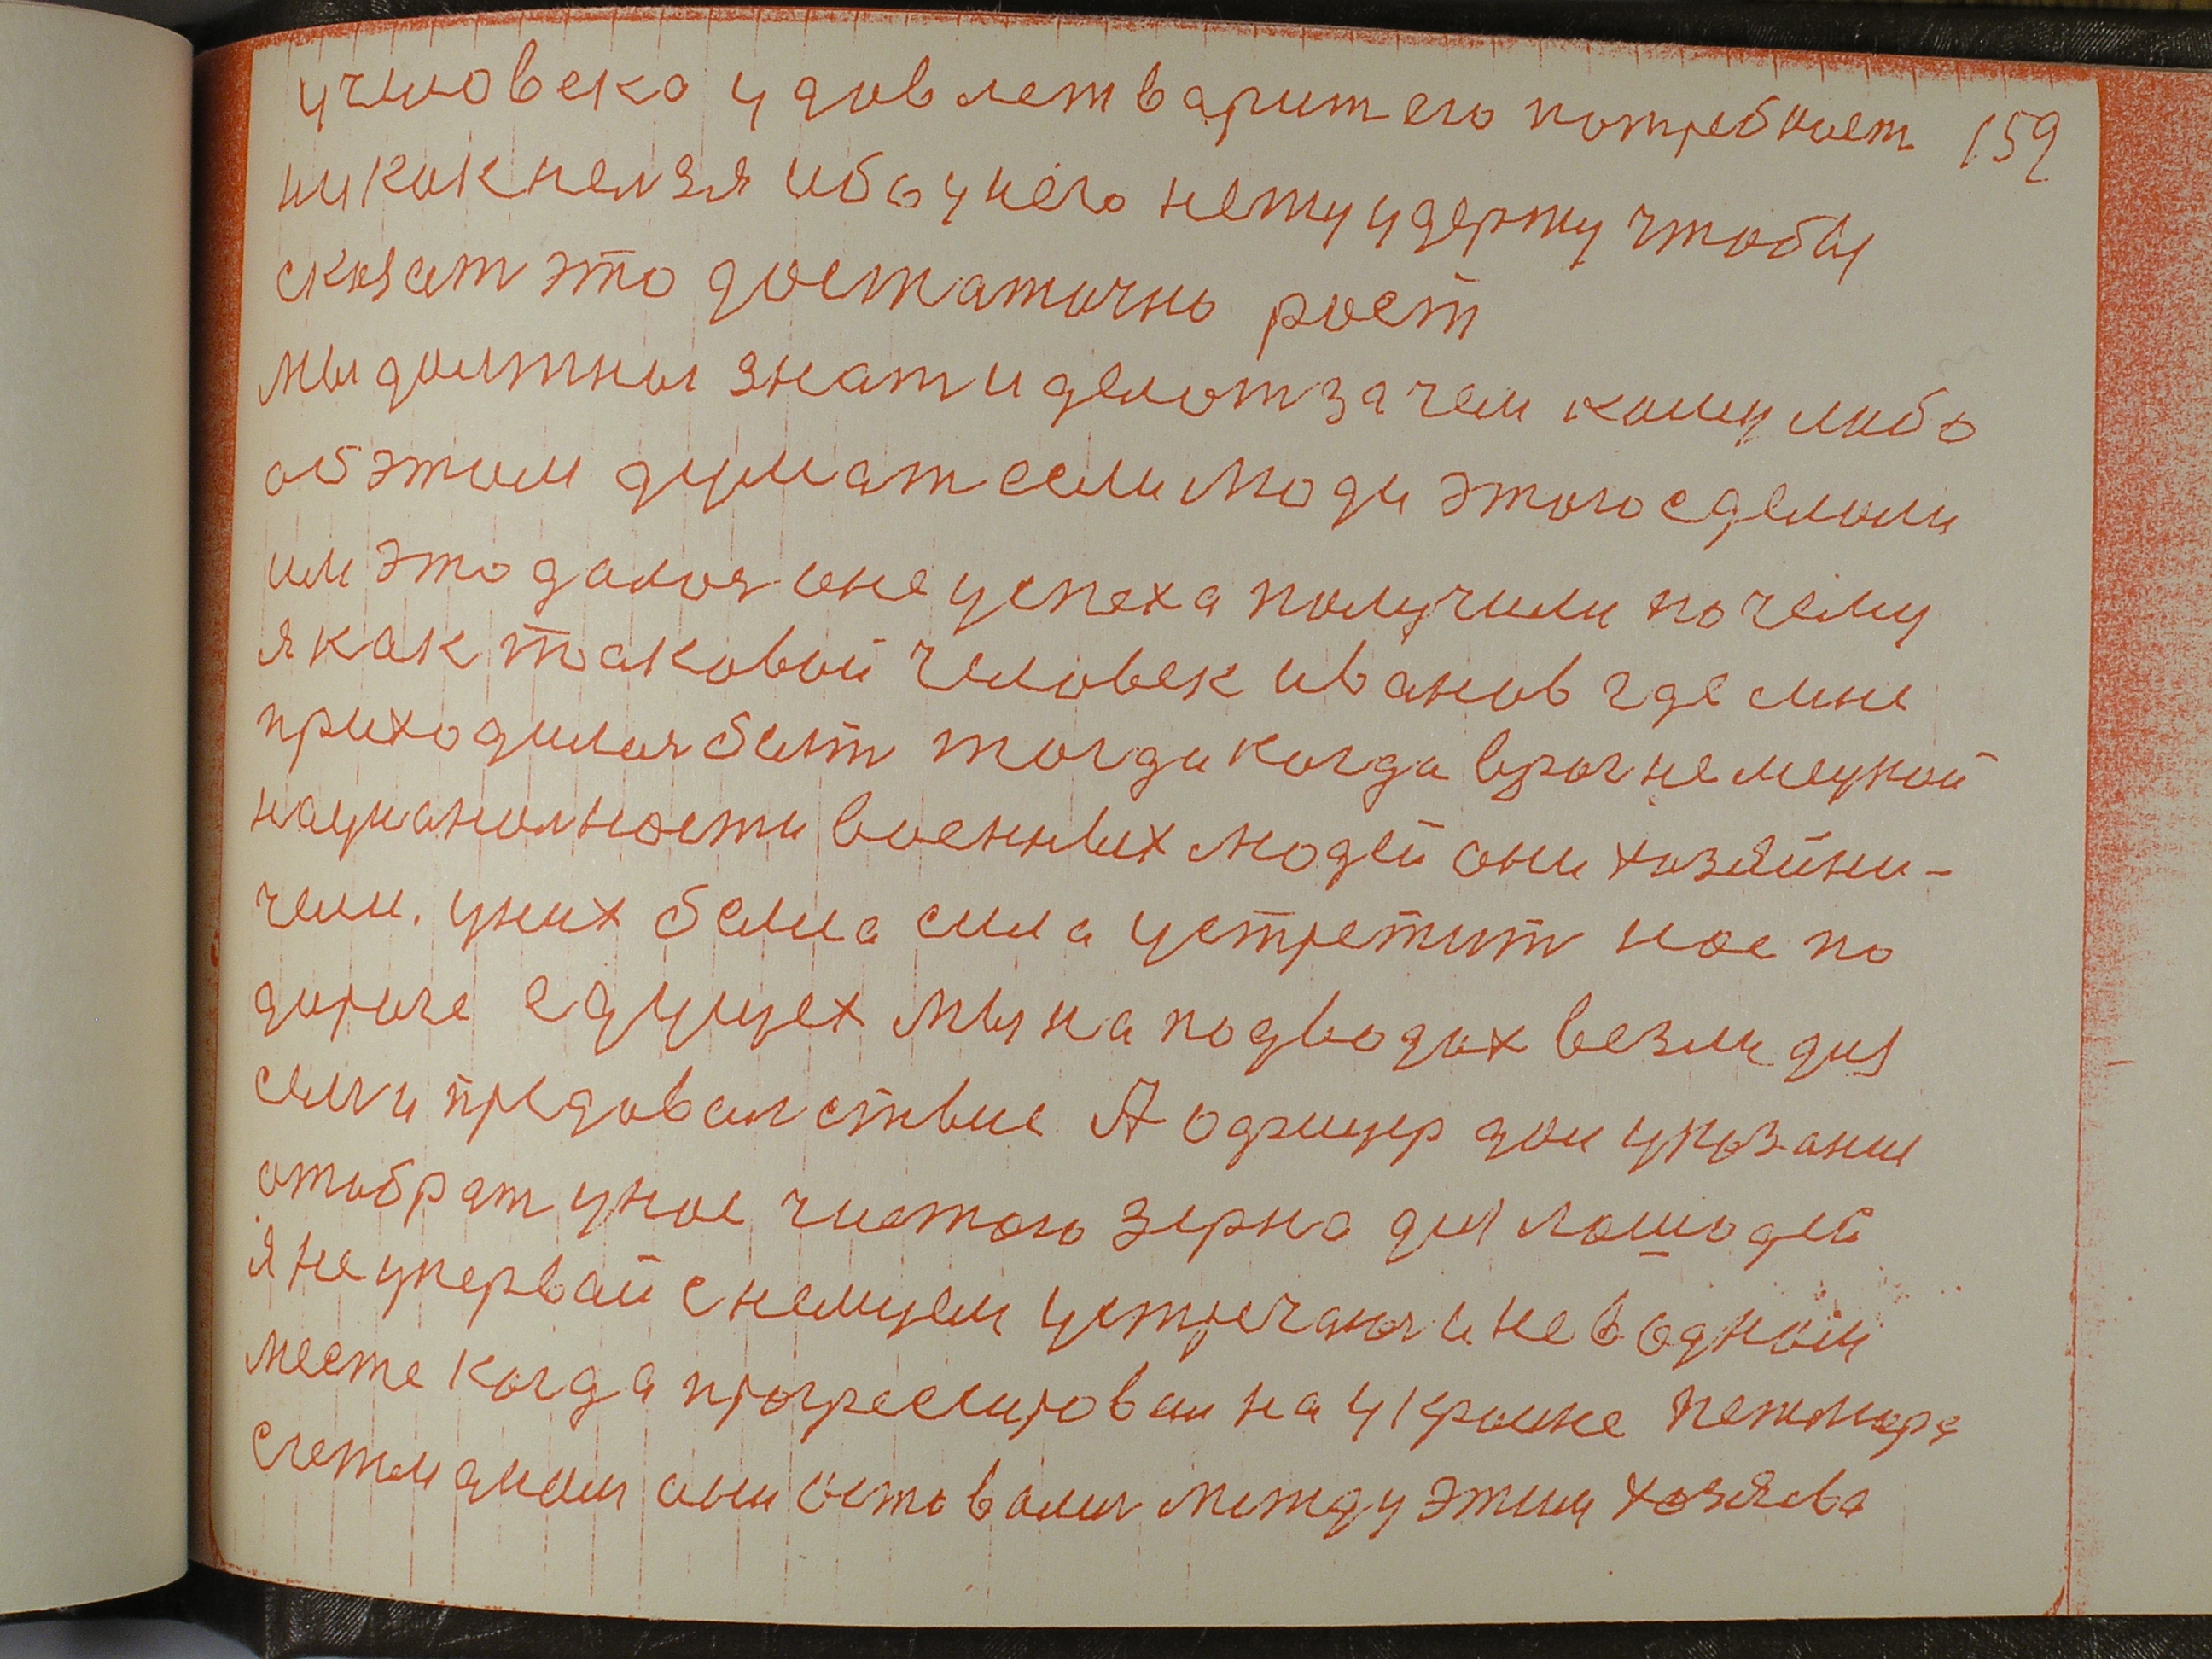 училовека удовлетварит его потребност 159
никак нелзя ибо у него нету удержу чтобы
сказат это достаточно рост
мы должны знат и делот зачем кому любо
об этом думат если люди этого сделали
им это далося оне успеха получили почему
я как таковой человек иванов где мне
приходилося быт тогда когда враг немецкой
нацианолности военных людей они хозяйни-
чели. у них была сила устретит нас по
дороге едущех мы на подводах везли для
семи предоволствие А офицер дои указание
отобрат у нас чистого зерна для лошодей
я не упервай с немцем устречаюся и не в одном
месте когда прогресировали на украине
они оставалис между этим хозяева